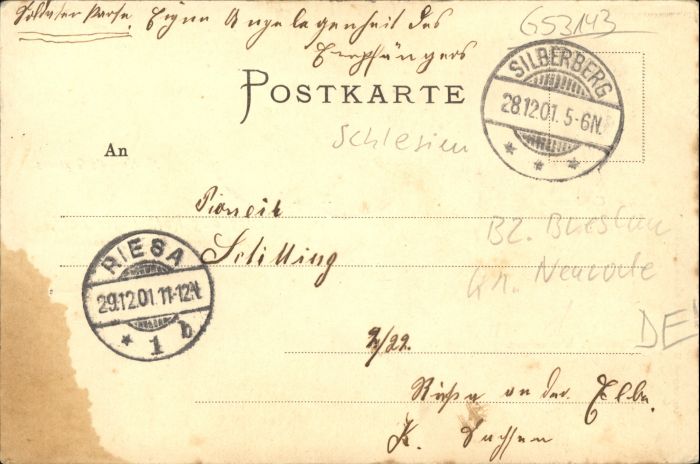 Eigne Angelegenheit des
Empfängers
G53143
POSTKARTE
SILBERBERG
28.12.01. 5-6N.
Schlesien
An
Pionier
Schilling
Bz. Breslau
Neurode
RIESA
29.12.01. 11-12V.
* 1 b
DE
2/22.
Riesa an der Elbe.
K. Sachsen